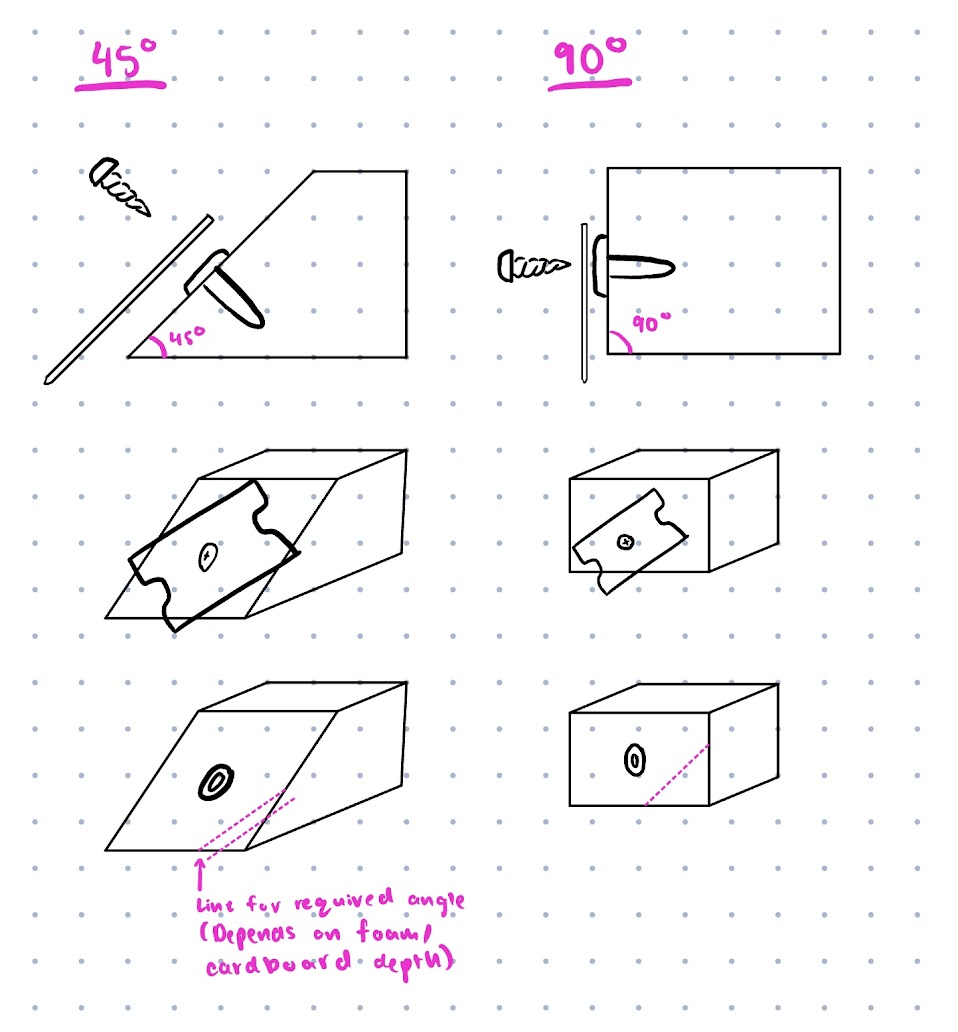 45°
90°
45°
90°
Line for required angle
(Depends on foam/
cardboard depth)